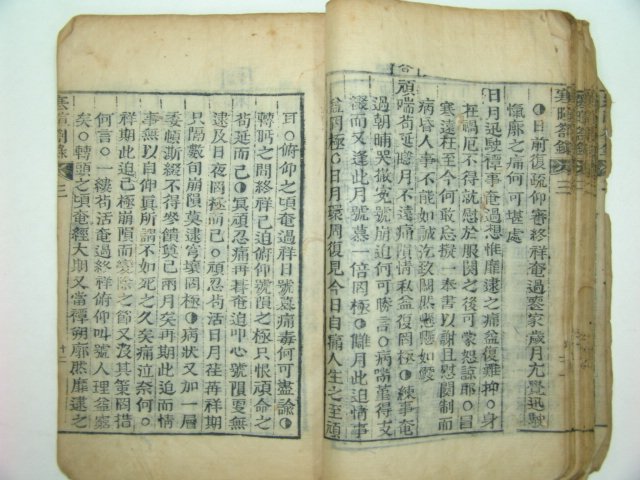 ◑日前復疏仰審終祥奄過喪家歲月尤覺迅駛
慟靡之痛何可堪處
日月迅駛禫事奄過想惟靡逮之痛益復難抑○身
在厄不得就慰於服闋之後可蒙恕諒耶○日
寒遠在至今何敢忘擬一奉書以謝且慰闋制而
病昏人事不能如誠訖致闕然如
頑喘苟延月不遠痛隕情私益復罔極○練事奄
過朝晡哭撤冤號崩迫何可勝言○病喘菫得支
綴而又逢此月號慕一倍罔極○月此迫情事
益罔極○日月環周復見今日自痛人生之至頑
耳○俯仰之間奄過祥日號哀痛毒何可盡諭◑
轉眄之間終祥已迫俯仰號隕之極只恨頑命之
苟延而已○冥頑忍痛再朞奄迫叩心號隕更無
逮及日夜罔極而已○頑忍苟活日月荏苒祥期
只隔數旬崩隕莫逮冤罔極○病狀又加一層
委頓澌綴不得參饋奠已兩月矣再期此迫而情
事無以自仰眞所謂不如死之久矣痛泣奈何○
祥期此迫已極崩隕而變除之節又罔措
何言○一縷苟活奄過終祥俯仰叫號人理益窮
矣○轉頭之頃奄經大期又當禫朔廓然靡逮之
寒暄劄錄